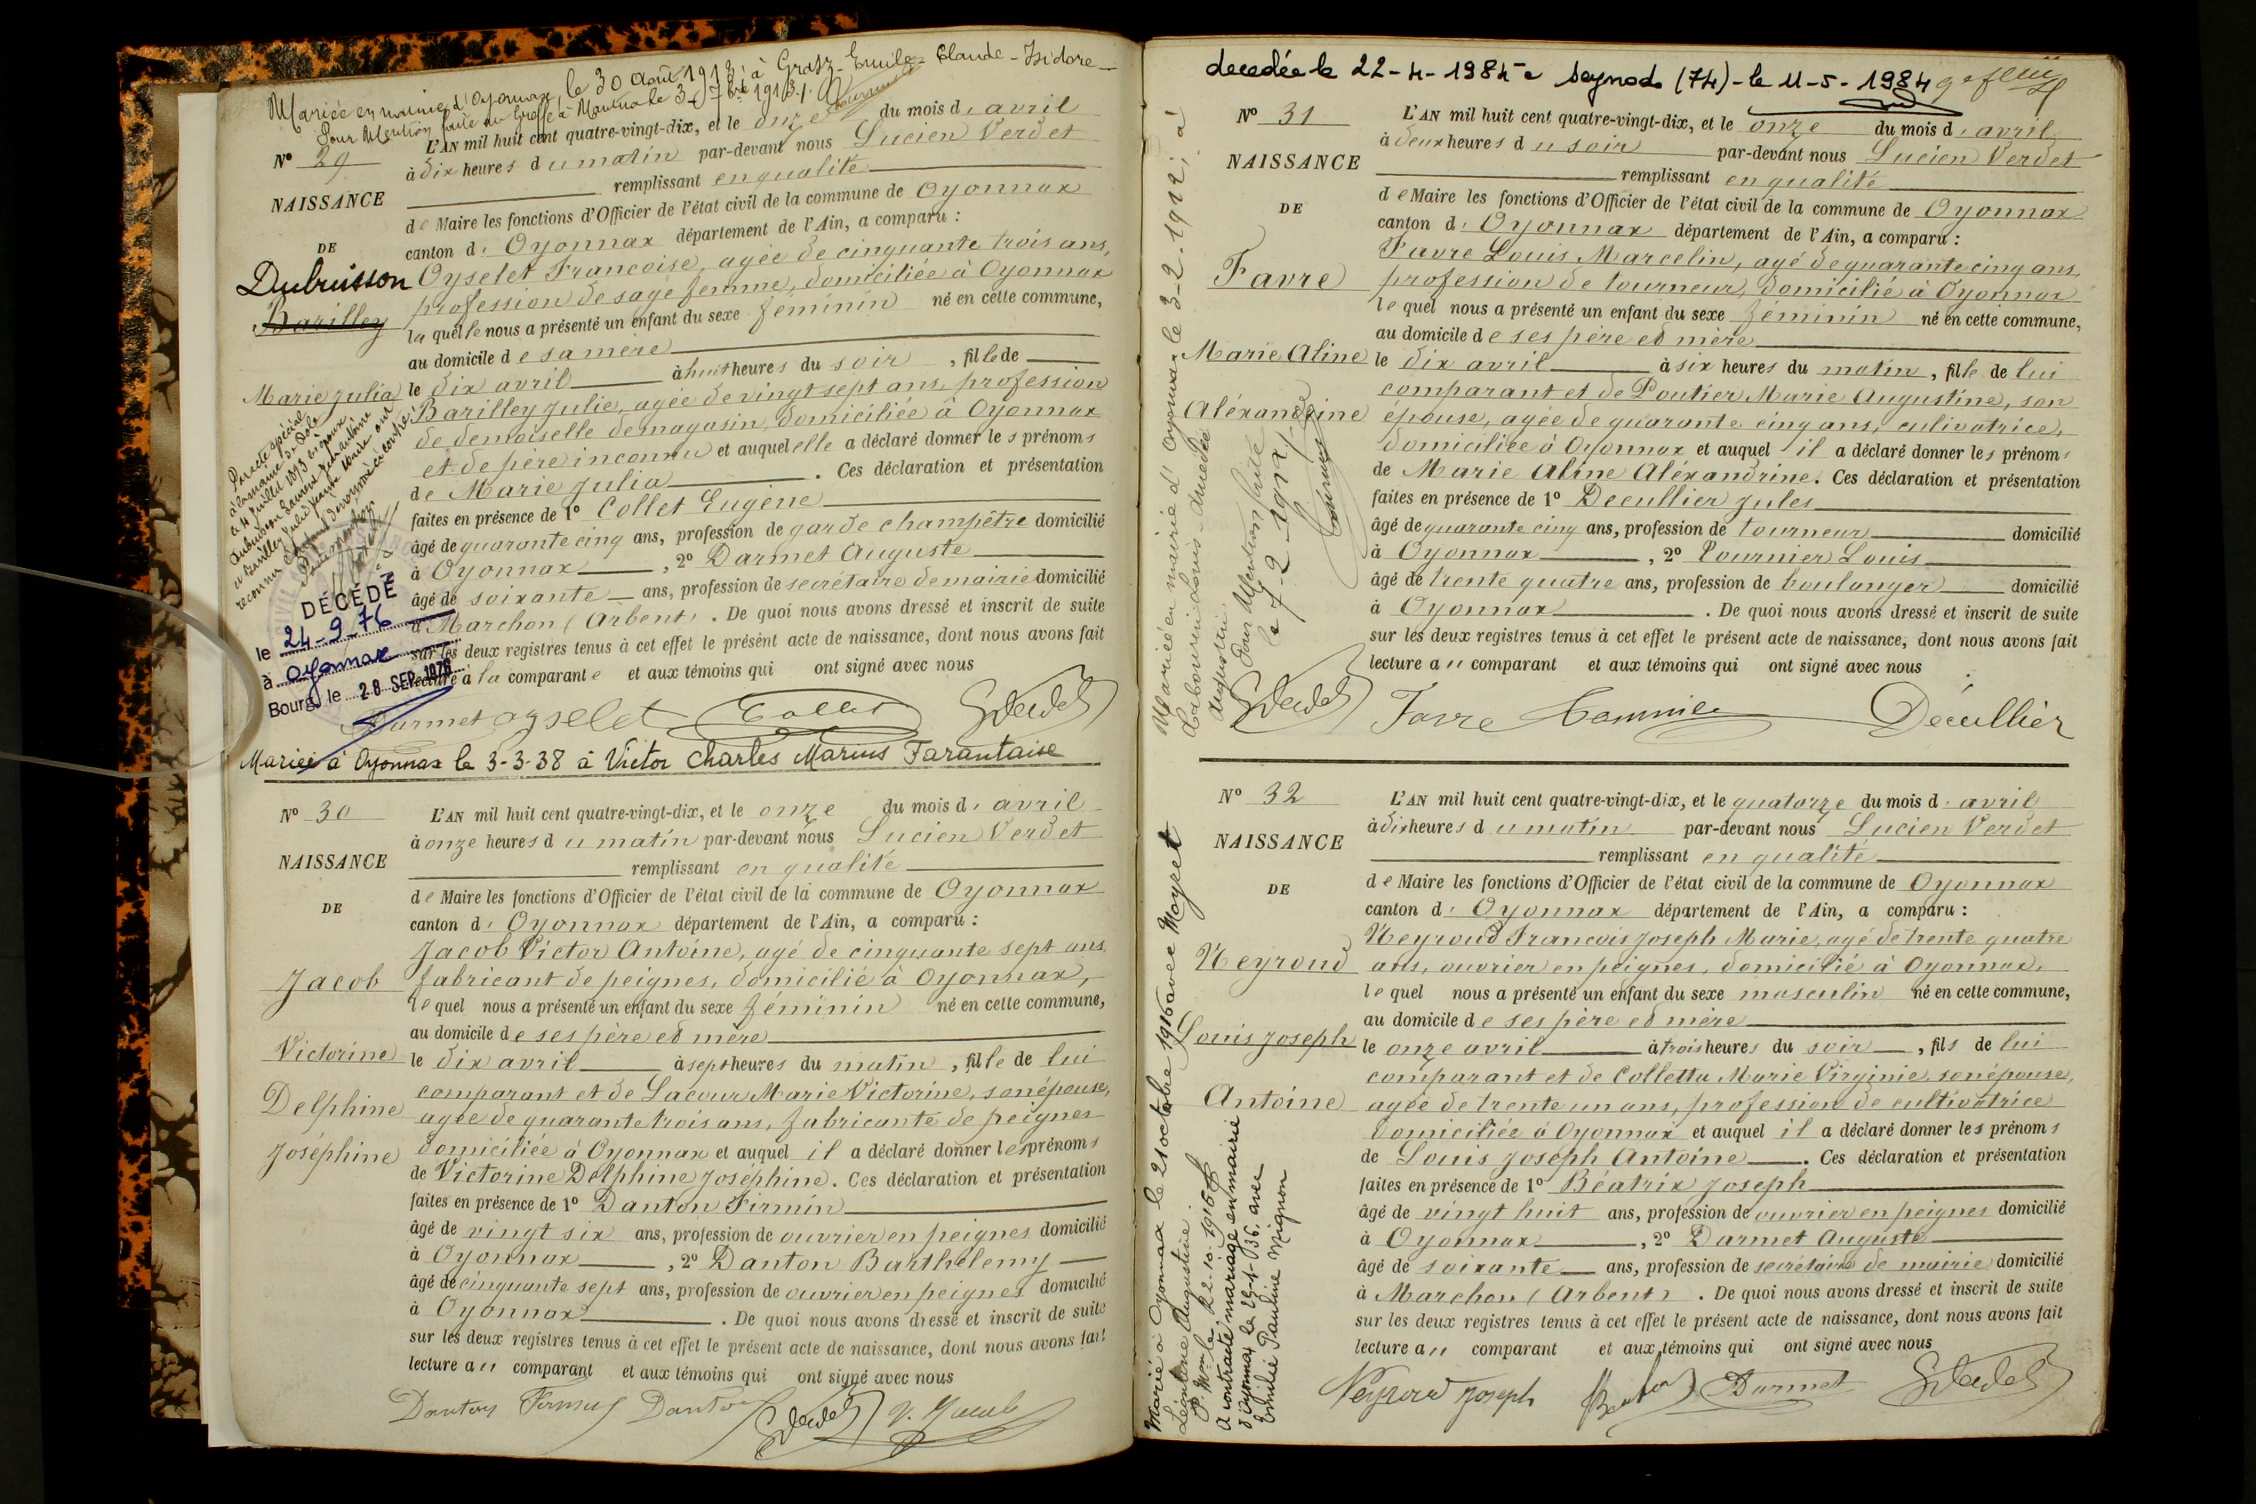 Mariée en mairie d'Oyonnax, le 30 Août 1913, à Emile - Claude - Isidore
Pour Mention faite au Greffe à Nantua le 3 - 7bre 1913.
N° 29
NAISSANCE
DE
Dubuisson
Barilley
Marie Julia
Par acte spécial
à la mairie de
le 4 Juillet 1893
DÉCÉDÉ
le 24-9-76
à Oyonnax
Bourg, le 28 SEP. 1976
L'AN mil huit cent quatre-vingt-dix, et le onze du mois d' avril
à dix heures du matin par-devant nous Lucien Verdet
remplissant en qualité
de Maire les fonctions d'Officier de l'état civil de la commune de Oyonnax
canton d' Oyonnax département de l'Ain, a comparu :
Oyselet Francoise, agée de cinquante trois ans,
profession de sage femme, domiciliée à Oyonnax
laquelle nous a présenté un enfant du sexe féminin né en cette commune,
au domicile de sa mère
le dix avril à huit heures du soir, fille de
Barilley Julie, agée de vingt sept ans, profession
de demoiselle de magasin, domiciliée à Oyonnax
et de père inconnu et auquel elle a déclaré donner les prénoms
de Marie Julia. Ces déclaration et présentation
faites en présence de 1° Collet Eugène
âgé de quarante cinq ans, profession de garde champêtre domicilié
à Oyonnax, 2° Darmet Auguste
âgé de soixante ans, profession de secrétaire de mairie domicilié
à Marchon (Arbent). De quoi nous avons dressé et inscrit de suite
sur les deux registres tenus à cet effet le présent acte de naissance, dont nous avons fait
lecture à la comparante et aux témoins qui ont signé avec nous
Darmet oyselet Collet Verdet
Mariée à Oyonnax le 3-3-38 à Victor Charles Marius Tarantaise
N° 30
NAISSANCE
DE
Jacob
Victorine
Delphine
Joséphine
L'AN mil huit cent quatre-vingt-dix, et le onze du mois d' avril
à onze heures du matin par-devant nous Lucien Verdet
remplissant en qualité
de Maire les fonctions d'Officier de l'état civil de la commune de Oyonnax
canton d' Oyonnax département de l'Ain, a comparu :
Jacob Victor Antoine, agé de cinquante sept ans
fabricant de peignes, domicilié à Oyonnax,
lequel nous a présenté un enfant du sexe féminin né en cette commune,
au domicile de ses père et mère
le dix avril à sept heures du matin, fille de lui
comparant et de Lacour Marie Victorine, son épouse,
agée de quarante trois ans, fabricante de peignes
domiciliée à Oyonnax et auquel il a déclaré donner les prénoms
de Victorine Delphine Joséphine. Ces déclaration et présentation
faites en présence de 1° Danton Firmin
âgé de vingt six ans, profession de ouvrier en peignes domicilié
à Oyonnax, 2° Danton Barthélemy
âgé de cinquante sept ans, profession de ouvrier en peignes domicilié
à Oyonnax. De quoi nous avons dressé et inscrit de suite
sur les deux registres tenus à cet effet le présent acte de naissance, dont nous avons fait
lecture au comparant et aux témoins qui ont signé avec nous
Danton Firmin Danton Verdet V. Jacob
decedée le 22-4-1984 à Seynod (74) - le 11-5-1984
N° 31
NAISSANCE
DE
Favre
Marie Aline
Aléxandrine
Mariée en mairie d'Oyonnax le 3-2-1912, à
Augustin
Pour Mention faite
le 7-2-1912
L'AN mil huit cent quatre-vingt-dix, et le onze du mois d' avril
à deux heures du soir par-devant nous Lucien Verdet
remplissant en qualité
de Maire les fonctions d'Officier de l'état civil de la commune de Oyonnax
canton d' Oyonnax département de l'Ain, a comparu :
Favre Louis Marcelin, agé de quarante cinq ans,
profession de tourneur, domicilié à Oyonnax
lequel nous a présenté un enfant du sexe féminin né en cette commune,
au domicile de ses père et mère
le dix avril à six heures du matin, fille de lui
comparant et de Poutier Marie Augustine, son
épouse, agée de quarante cinq ans, culivatrice,
domiciliée à Oyonnax et auquel il a déclaré donner les prénoms
de Marie Aline Aléxandrine. Ces déclaration et présentation
faites en présence de 1° Decullier Jules
âgé de quarante cinq ans, profession de tourneur domicilié
à Oyonnax, 2° Tournier Louis
âgé de trente quatre ans, profession de boulanger domicilié
à Oyonnax. De quoi nous avons dressé et inscrit de suite
sur les deux registres tenus à cet effet le présent acte de naissance, dont nous avons fait
lecture au comparant et aux témoins qui ont signé avec nous
Verdet Favre Tournier Décullier
N° 32
NAISSANCE
DE
Neyroud
Louis Joseph
Antoine
Marié à Oyonnax le 21 octobre 1916 avec Mayret
Léontine Augustine.
P. Mon le, 22-10-1916
A contracté mariage en mairie
d'Oyonnax le 18-1-36, avec
Emilie Pauline Mignon
L'AN mil huit cent quatre-vingt-dix, et le quatorze du mois d' avril
à dix heures du matin par-devant nous Lucien Verdet
remplissant en qualité
de Maire les fonctions d'Officier de l'état civil de la commune de Oyonnax
canton d' Oyonnax département de l'Ain, a comparu :
Neyroud Francois Joseph Marie, agé de trente quatre
ans, ouvrier en peignes, domicilié à Oyonnax,
lequel nous a présenté un enfant du sexe masculin né en cette commune,
au domicile de ses père et mère
le onze avril à trois heures du soir, fils de lui
comparant et de Colletta Marie Virginie, son épouse,
agée de trente un ans, profession de cultivatrice
domiciliée à Oyonnax et auquel il a déclaré donner les prénoms
de Louis Joseph Antoine. Ces déclaration et présentation
faites en présence de 1° Béatrix Joseph
âgé de vingt huit ans, profession de ouvrier en peignes domicilié
à Oyonnax, 2° Darmet Auguste
âgé de soixante ans, profession de secrétaire de mairie domicilié
à Marchon (Arbent). De quoi nous avons dressé et inscrit de suite
sur les deux registres tenus à cet effet le présent acte de naissance, dont nous avons fait
lecture au comparant et aux témoins qui ont signé avec nous
Neyroud Joseph Darmet Verdet